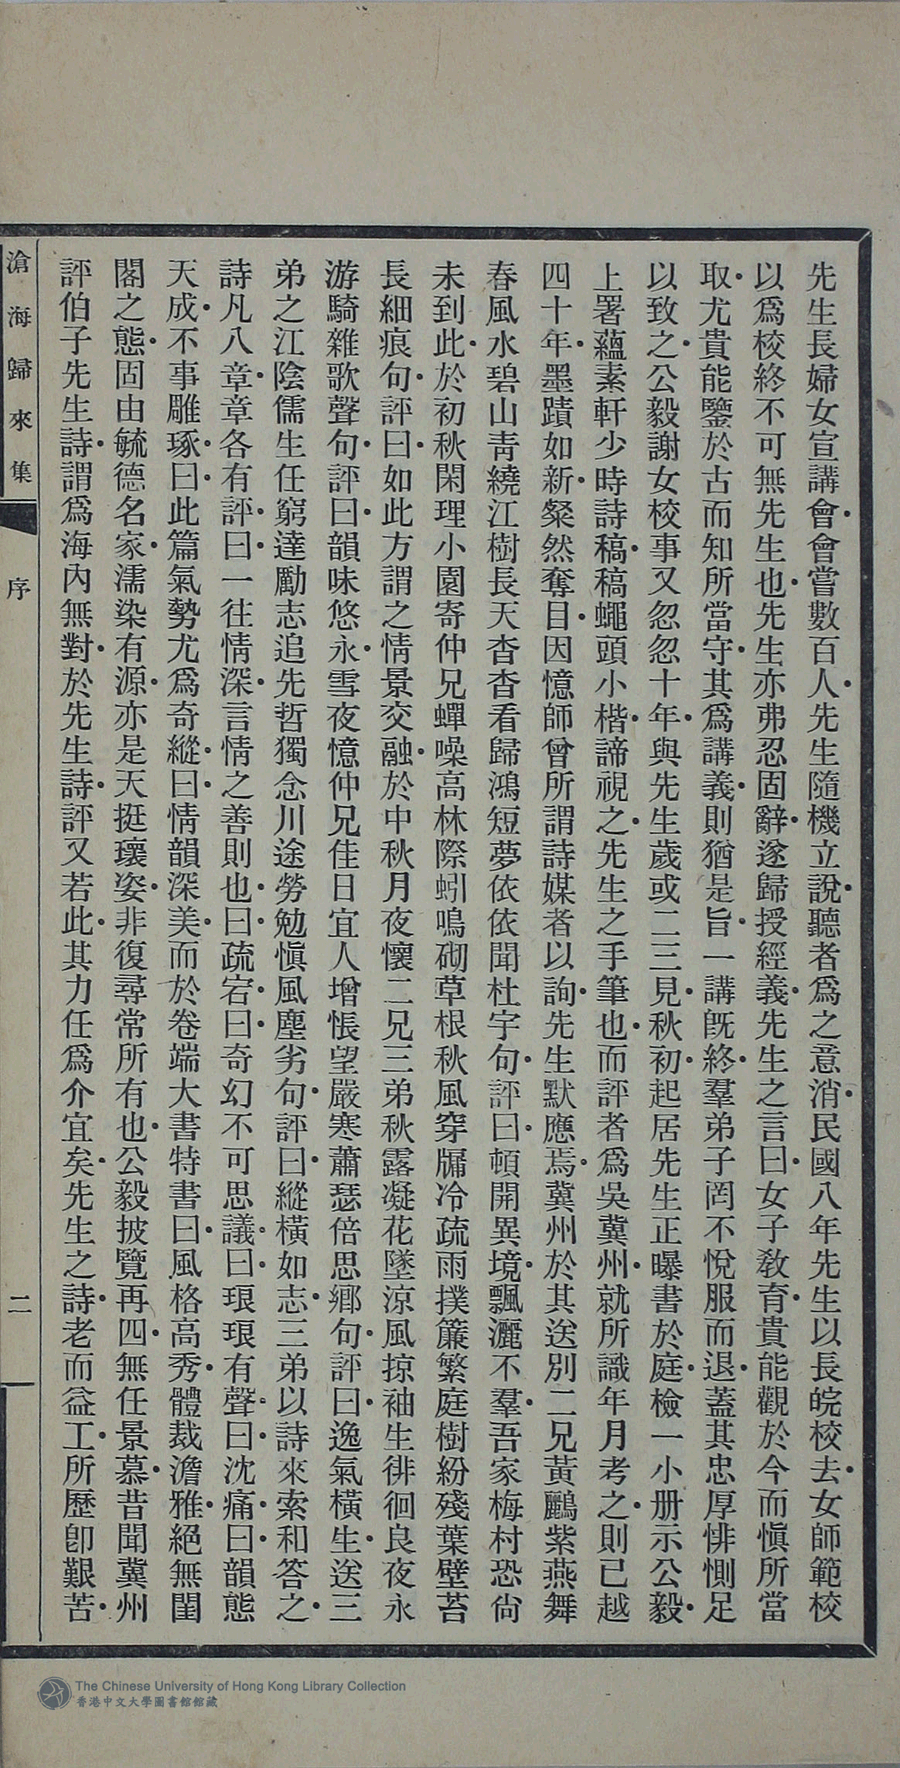 先生長婦女宣講會會嘗數百人先生隨機立說聽者爲之意消民國八年先生以長皖校去女師範校
以爲校終不可無先生也先生亦弗忍固辭遂歸授經義先生之言曰女子教育貴能觀於今而愼所當
取尤貴能鑒於古而知所當守其爲講義則猶是旨一講旣終羣弟子罔不悅服而退蓋其忠厚悱惻足
以致之公毅謝女校事又忽忽十年與先生歲或二三見秋初起居先生正曝書於庭檢一小册示公毅
上署蘊素軒少時詩稿稿蠅頭小楷諦視之先生之手筆也而評者爲吳冀州就所識年月考之則已越
四十年墨蹟如新粲然奪目因憶師曾所謂詩媒者以詢先生默應焉冀州於其送別二兄黃鸝紫燕舞
春風水碧山靑繞江樹長天杳杳看歸鴻短夢依依聞杜宇句評曰頓開異境飄灑不羣吾家梅村恐尙
未到此於初秋閑理小園寄仲兄蟬噪高林際蚓鳴砌草根秋風穿牖冷疏雨撲簾繁庭樹紛殘葉壁苔
長細痕句評曰如此方謂之情景交融於中秋月夜懷二兄三弟秋露凝花墜涼風掠袖生徘徊良夜永
游騎雜歌聲句評曰韻味悠永雪夜憶仲兄佳日宜人增悵望嚴寒蕭瑟倍思鄉句評曰逸氣橫生送三
弟之江陰儒生任窮達勵志追先哲獨念川途勞勉愼風塵劣句評曰縱橫如志三弟以詩來索和答之
詩凡八章章各有評曰一往情深言情之善則也曰疏宕曰奇幻不可思議曰琅琅有聲曰沈痛曰韻態
天成不事雕琢曰此篇氣勢尤爲奇縱曰情韻深美而於卷端大書特書曰風格高秀體裁澹雅絕無閨
閣之態固由毓德名家濡染有源亦是天挺瓌姿非復尋常所有也公毅披覽再四無任景慕昔聞冀州
評伯子先生詩謂爲海內無對於先生詩評又若此其力任爲介宜矣先生之詩老而益工所歷卽艱苦
滄海歸來集
序
二
The Chinese University of Hong Kong Library Collection
香港中文大學圖書館館藏